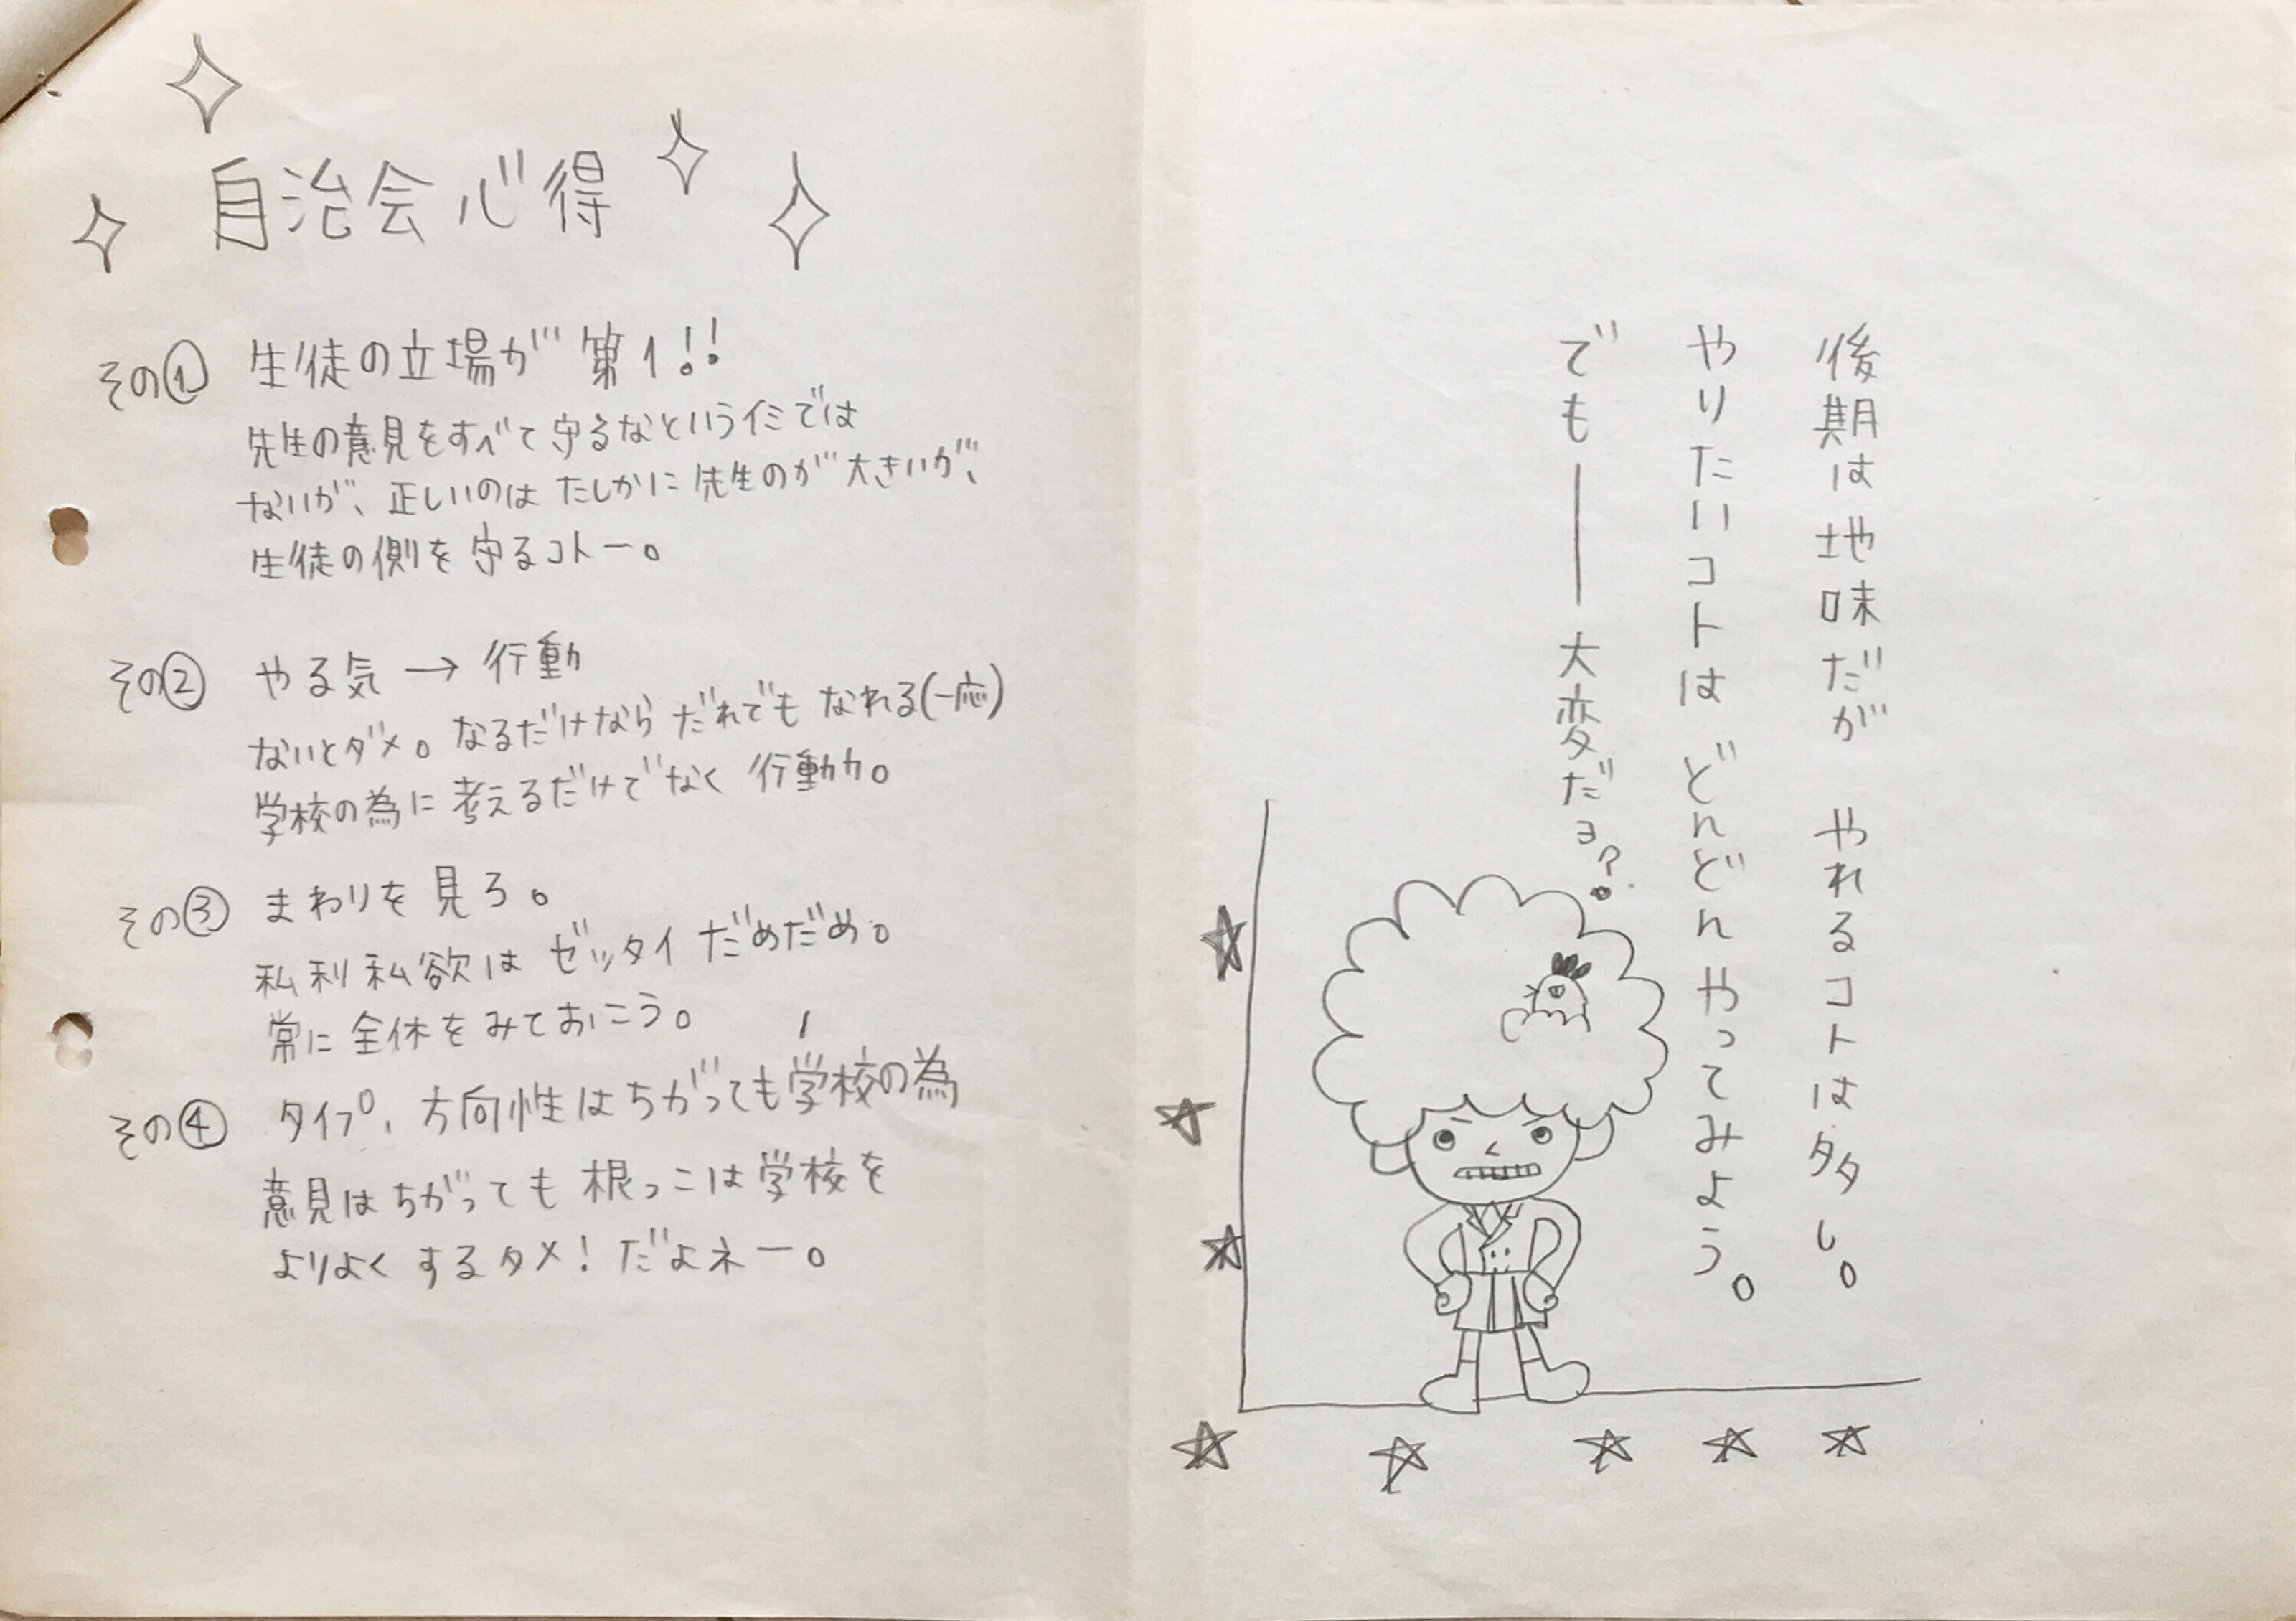 自治会心得
その① 生徒の立場が第1!!
先生の意見をすべて守るなというイミでは
ないが、正しいのはたしかに先生のが大きいが、
生徒の側を守るコトー。
その② やる気→行動
ないとダメ。なるだけならだれでもなれる(一応)
学校の為に考えるだけでなく行動力。
その③ まわりを見ろ。
私利私欲はゼッタイだめだめ。
常に全体をみておこう。
その④ タイプ、方向性はちがっても学校の為
意見はちがっても根っこは学校を
よりよくするタメ!だよネー。
後期は地味だが やれるコトは多し。
やりたいコトは どんどんやってみよう。
でも――大変だョ?